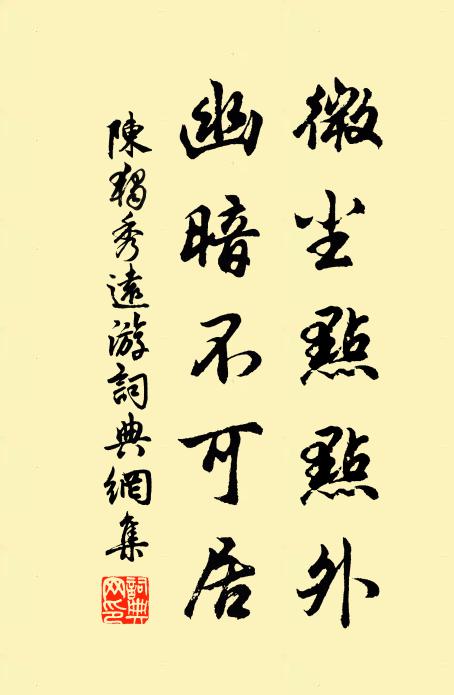 微尘點點外
幽暗不可居
陳獨秀遠游詞典網集
詞典网印